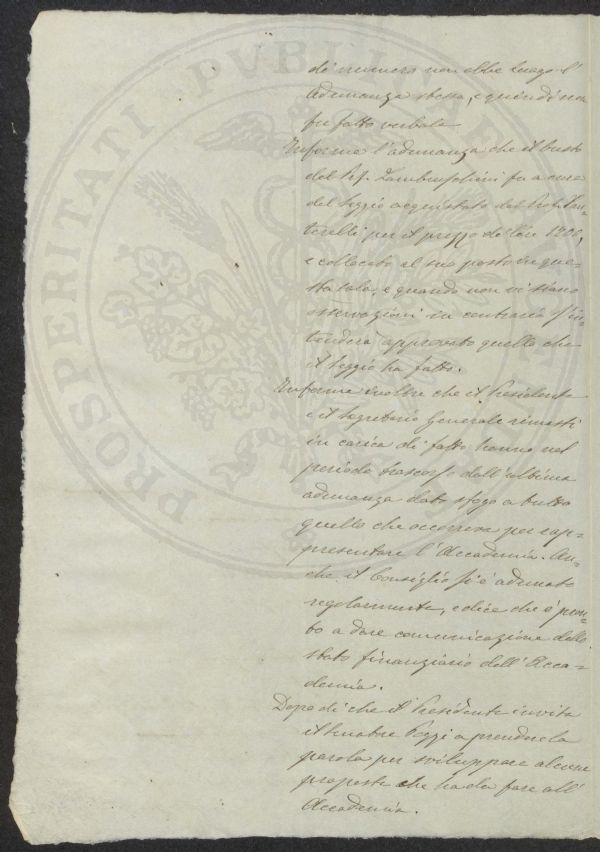 di numero non ebbe luogo l'
Adunanza stessa, e quindi non
fu fatto verbale
Informa l'adunanza che il busto
del Prof. Lambruschini fu a cura
del Seggio acquistato dal Prof. Can-
tarelli per il prezzo di lire 1200,
e collocato al suo posto in que-
sta sala, e quando non vi siano
osservazioni in contrario s'in-
tenderà approvato quello che
il Seggio ha fatto.
Informa inoltre che il Presidente
e il Segretario Generale rimasti
in carica di fatto hanno nel
periodo trascorso dall'ultima
adunanza dato sfogo a tutto
quello che occorreva per rap-
presentare l'Accademia. An-
che il Consiglio si è adunato
regolarmente, e dice che è pron-
to a dare comunicazione dello
stato finanziario dell'Acca-
demia.
Dopo di che il Presidente invita
il Senatore a prendere la
parola per sviluppare alcune
proposte che ha da fare all'
Accademia.
PROSPERITATI PVBLICAE